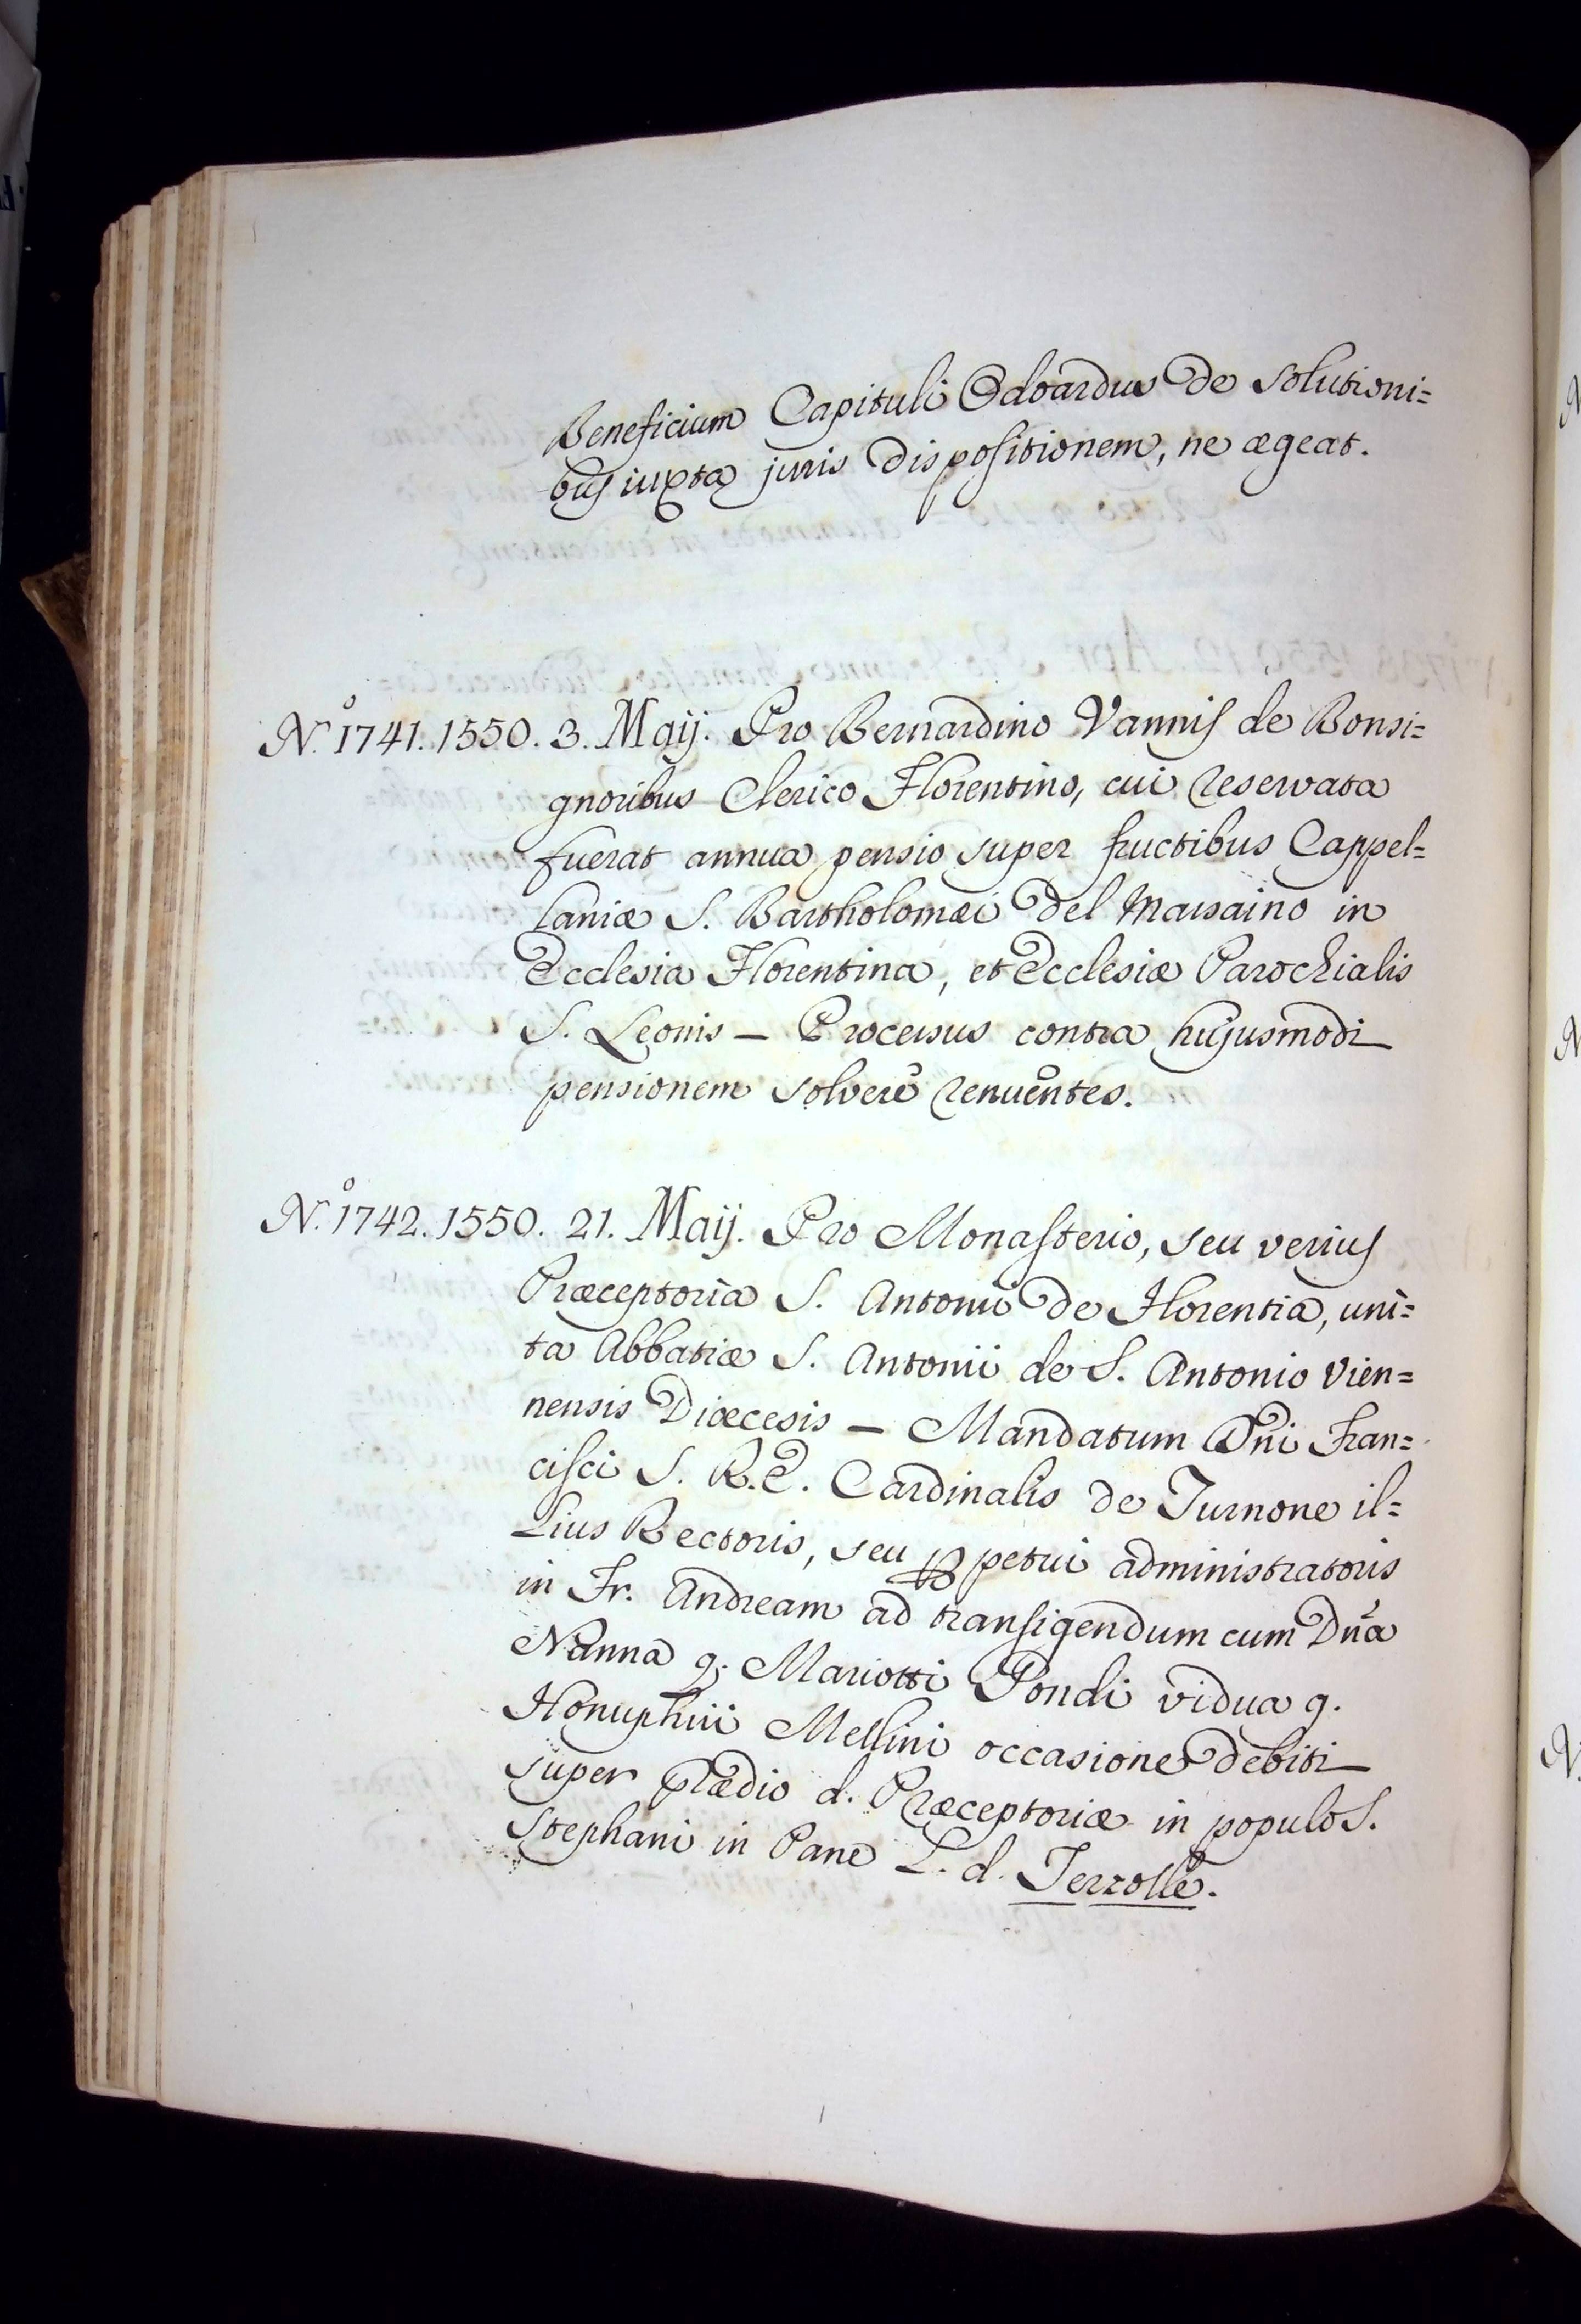 Beneficium Capituli Odoardus de solutioni=
bus iuxta juris dispositionem, ne ægeat.
N.° 1741. 1550. 3. Maij. Pro Bernardino Vannis de Bonsi=
gnoribus Clerico Florentino, cui reservata
fuerat annua pensio super fructibus Cappel=
laniæ S. Bartholomæi del Marsaino in
Ecclesia Florentina, et Ecclesiæ Parochialis
S. Leonis — Processus contra hujusmodi
pensionem solvere renuentes.
N.° 1742. 1550. 21. Maij. Pro Monasterio, seu verius
Præceptoria S. Antonii de Florentia, uni=
ta Abbatiæ S. Antonii de S. Antonio Vien=
nensis Diœcesis — Mandatum Dñi Fran=
cisci S. R. E. Cardinalis de Turnone il=
lius Rectoris, seu ꝑpetui administratoris
in Fr. Andream ad transigendum cum Dña
Nanna q. Mariotti Pondi vidua q.
Honuphrii Mellini occasione debiti
super prædio d. Præceptoriæ in populo S.
Stephani in Pane L. d. Terzolle.